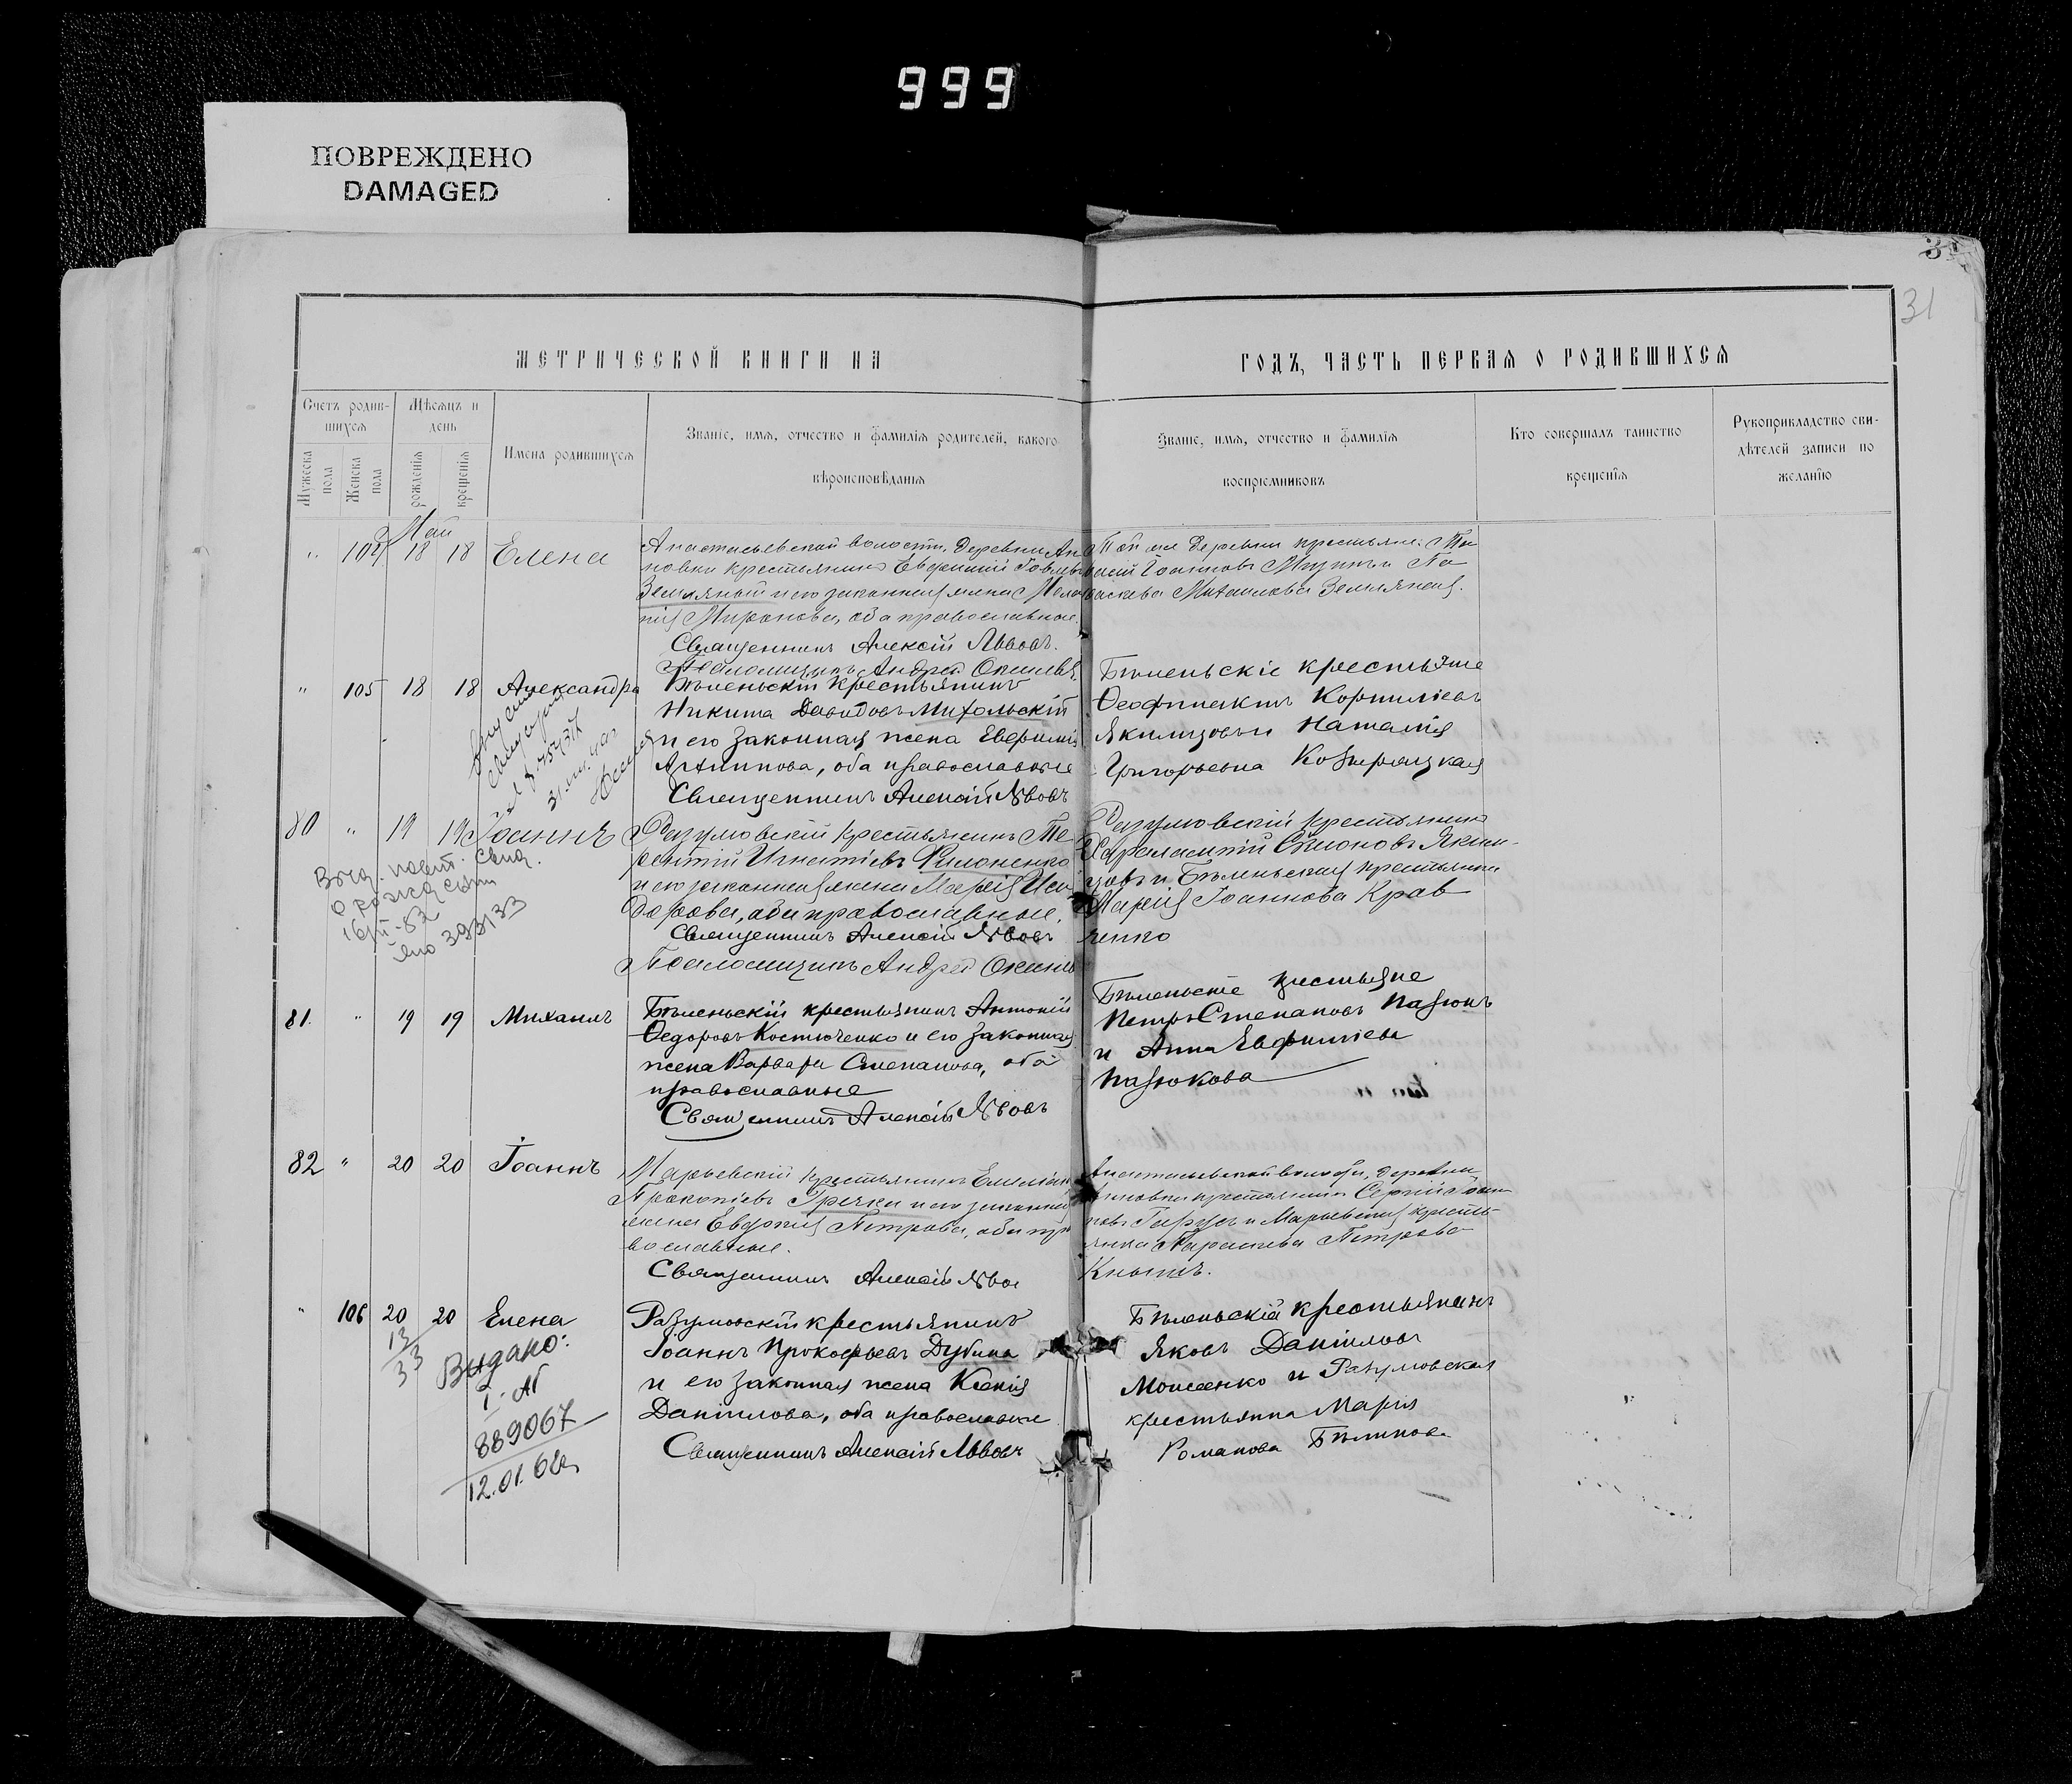 999
ПОВРЕЖДЕНО
DAMAGED
31
МЕТРИЧЕСКОЙ КНИГИ НА
ГОДЪ, ЧАСТЬ ПЕРВАЯ О РОДИВШИХСЯ
Счетъ родив-
шихся
Мужеска пола
Женска пола
Мѣсяцъ и
день
рожденія
крещенія
Имена родившихся
Званіе, имя, отчество и фамилія родителей, какого
вѣроисповѣданія
Званіе, имя, отчество и фамилія
воспріемниковъ
Кто совершалъ таинство
крещенія
Рукоприкладство сви-
дѣтелей записи по
желанію
Май
" 104 18 18 Елена
Анастасьевской волости, деревни
новки крестьянинъ Евфимій
Земляный и его законная жена
Миронова, оба православные.
Священникъ Алексій Львовъ.
Псаломщикъ Андрей
Той же деревни крестьяне:
Іоанновъ и Па
раскева Михаилова Земляная.
" 105 18 18 Александра
Бѣленьскій крестьянинъ
Никита Давидовъ Михольскій
и его законная жена Евфимія
Архипова, оба православные
Священникъ Алексій Львовъ
Бѣленьскіе крестьяне
Ѳеофилактъ Корниліевъ
Якимцовъ и Наталія
Григорьевна
80 " 19 19 Іоаннъ
Разумовскій крестьянинъ Те
рентій Игнатіевъ Филоненко
и его законная жена Марія Иси
дорова, оба православные.
Священникъ Алексій Львовъ
Псаломщикъ Андрей
Разумовскій крестьянинъ
Харалампій Симоновъ Яким-
цовъ и Бѣленьская крестьянка
Марія Іоаннова Крав
ченко
о рожд
16/II-52
393133
81. " 19 19 Михаилъ
Бѣленьскій крестьянинъ Антоній
Ѳедоровъ Костюченко и его законная
жена Варвара Степанова, оба
православные
Священникъ Алексій Львовъ
Бѣленьскіе крестьяне
Петръ Степановъ Пазюкъ
и Анна Евфиміева
Пазюкова
82 " 20 20 Іоаннъ
Марьевскій крестьянинъ Емиліанъ
Прокопіевъ Гречка и его законная
жена Евдокія Петрова, оба пра
вославные.
Священникъ Алексій Львов
Анастасьевской волости, деревни
крестьянинъ Сергій Іоан
новъ и Марьевская кресть-
янка Параскева Петрова
Кнышъ.
" 106 20 20 Елена
Разумовскій крестьянинъ
Іоаннъ Прокофьевъ Дубина
и его законная жена Ксенія
Даніилова, оба православные
Священникъ Алексій Львовъ
Бѣленьскій крестьянинъ
Яковъ Даніиловъ
Моисеенко и Разумовская
крестьянка Марія
Романова Бѣликова
13
33
Видано:
I-АГ
889067
12.01.62